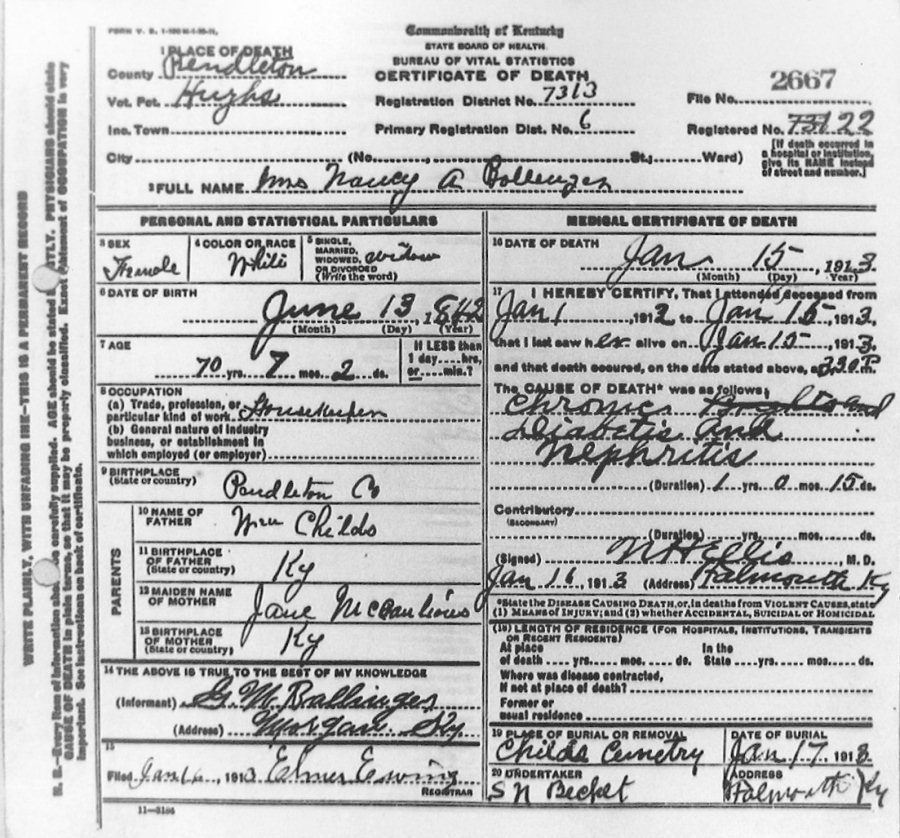 FORM V. S. 1-
Commonwealth of Kentucky
STATE BOARD OF HEALTH.
BUREAU OF VITAL STATISTICS
CERTIFICATE OF DEATH
1 PLACE OF DEATH
County Pendleton
Vot. Pct. Hughs
Inc. Town
City (No. , St.; Ward)
Registration District No. 7313
Primary Registration Dist. No. 6
File No. 2667
Registered No. 22
[If death occurred in
a hospital or institution,
give its NAME instead
of street and number.]
2 FULL NAME Mrs Nancy A Bollenger
PERSONAL AND STATISTICAL PARTICULARS
3 SEX
Female
4 COLOR OR RACE
White
5 SINGLE,
MARRIED,
WIDOWED,
OR DIVORCED
(Write the word)
widow
6 DATE OF BIRTH
June 13, 1842
(Month) (Day) (Year)
7 AGE
70 yrs. 7 mos. 2 ds.
If LESS than
1 day....hrs,
or....min.?
8 OCCUPATION
(a) Trade, profession, or
particular kind of work Housekeeper
(b) General nature of industry
business, or establishment in
which employed (or employer)
9 BIRTHPLACE
(State or country)
Pendleton Co
PARENTS
10 NAME OF
FATHER
Wm Childs
11 BIRTHPLACE
OF FATHER
(State or country)
Ky
12 MAIDEN NAME
OF MOTHER
Jane
13 BIRTHPLACE
OF MOTHER
(State or country)
Ky
14 THE ABOVE IS TRUE TO THE BEST OF MY KNOWLEDGE
(Informant) G. M. Ballinger
(Address) Morgan Ky
15
Filed Jan 16, 1913 Elmer Ewing
REGISTRAR
11-3184
MEDICAL CERTIFICATE OF DEATH
16 DATE OF DEATH
Jan 15 1913
(Month) (Day) (Year)
17 I HEREBY CERTIFY, That I attended deceased from
Jan 1, 1912 to Jan 15, 1913,
that I last saw her alive on Jan 15, 1913.
and that death occured, on the date stated above, at 330 P.
The CAUSE OF DEATH* was as follows:
Chronic Brights and
Diabetis and
Nephritis
(Duration) 1 yrs. 0 mos. 15 ds.
Contributory
(SECONDARY)
(Duration) yrs. mos. ds.
(Signed) N H Ellis M. D.
Jan 16, 1913 (Address) Falmouth Ky
*State the DISEASE CAUSING DEATH, or, in deaths from VIOLENT CAUSES, state
(1) MEANS OF INJURY; and (2) whether ACCIDENTAL, SUICIDAL OR HOMICIDAL
(18) LENGTH OF RESIDENCE (FOR HOSPITALS, INSTITUTIONS, TRANSIENTS
OR RECENT RESIDENTS)
At place In the
of death .... yrs. .... mos. .... ds. State .... yrs. .... mos. .... ds.
Where was disease contracted,
If not at place of death?
Former or
usual residence
19 PLACE OF BURIAL OR REMOVAL
Childs Cemetry
DATE OF BURIAL
Jan 17 1913
20 UNDERTAKER
S N Becket
ADDRESS
Falmouth Ky
WRITE PLAINLY, WITH UNFADING INK—THIS IS A PERMANENT RECORD
N. B.—Every item of information should be carefully supplied. AGE should be stated EXACTLY. PHYSICIANS should state
CAUSE OF DEATH in plain terms, so that it may be properly classified. Exact statement of OCCUPATION is very
important. See instructions on back of certificate.